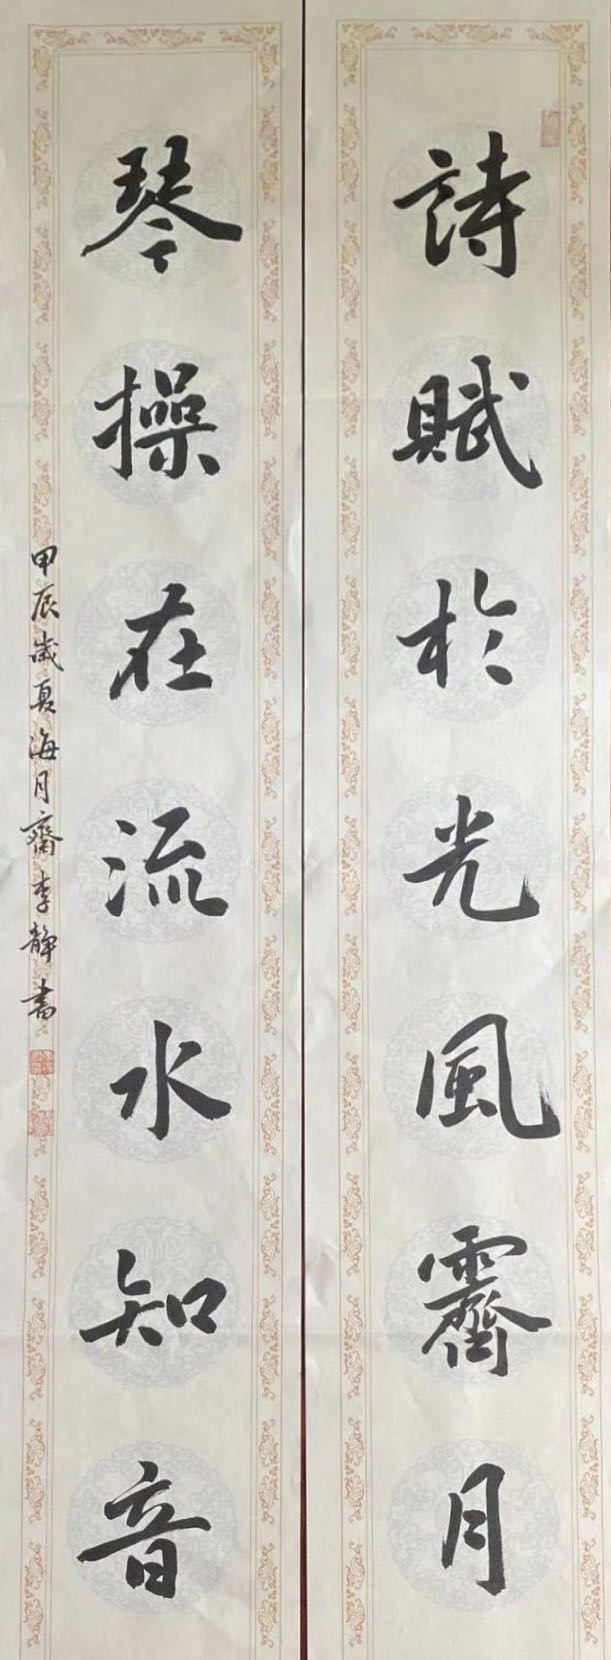 詩賦於光風霽月
琴操在流水知音
甲辰歲夏海月齋李靜書